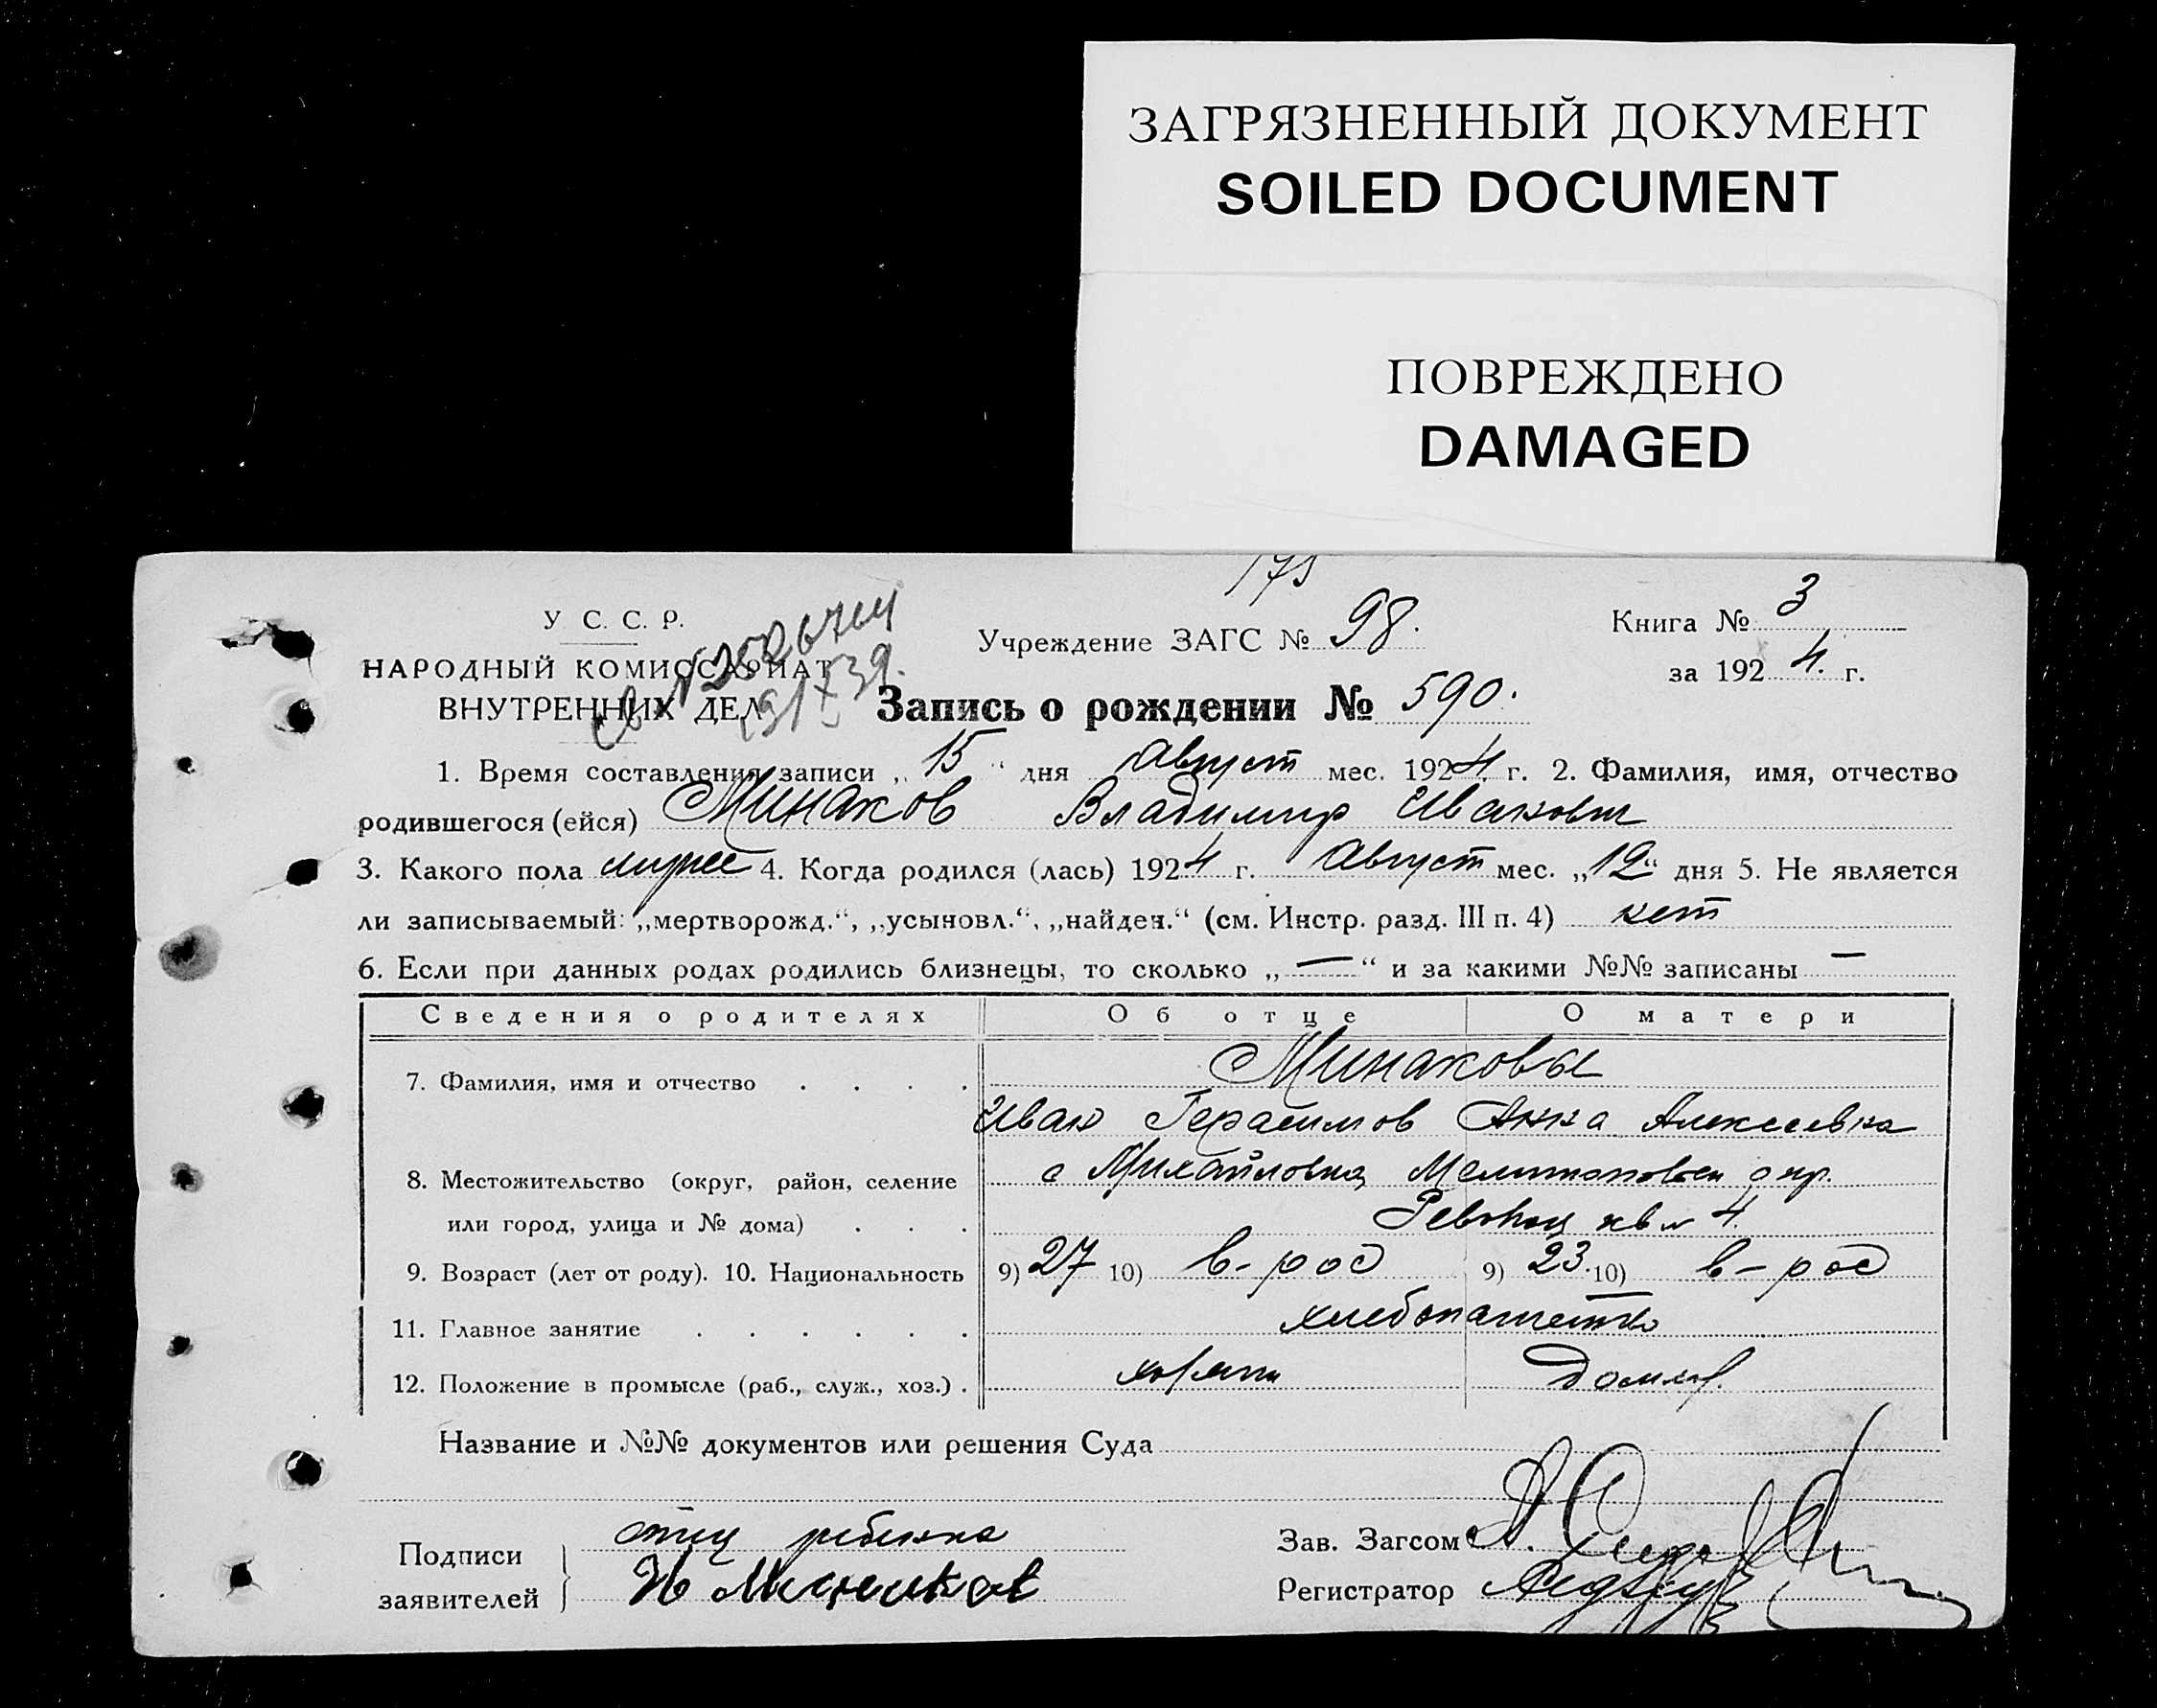 ЗАГРЯЗНЕННЫЙ ДОКУМЕНТ
SOILED DOCUMENT
ПОВРЕЖДЕНО
DAMAGED
175
У С. С. Р.
НАРОДНЫЙ КОМИССАРИАТ
ВНУТРЕННИХ ДЕЛ
31 X 39.
Учреждение ЗАГС № 98.
Книга № 3
за 1924. г.
Запись о рождении № 590.
1. Время составления записи „ 15 “ дня Август мес. 1924. г. 2. Фамилия, имя, отчество
родившегося (ейся) Минаков Владимир Иванович
3. Какого пола 4. Когда родился (лась) 1924 г. Август мес. „12“ дня 5. Не является
ли записываемый: „мертворожд.“, „усыновл.“, „найден.“ (см. Инстр. разд. III п. 4) нет
6. Если при данных родах родились близнецы, то сколько „ — “ и за какими №№ записаны —
Сведения о родителях Об отце О матери
7. Фамилия, имя и отчество . . . . Минаковы
Иван Герасимов Анна Алексеевна
8. Местожительство (округ, район, селение с Михайловка Мелитопольск окр.
или город, улица и № дома) . . . кв № 4.
9. Возраст (лет от роду). 10. Национальность 9) 27 10) в-рос 9) 23. 10) в-рос
11. Главное занятие . . . . . . хлебопашество
12. Положение в промысле (раб., служ., хоз.) . хозяин домхоз.
Название и №№ документов или решения Суда
Подписи заявителей } отец ребенка
И Минаков
Зав. Загсом
Регистратор